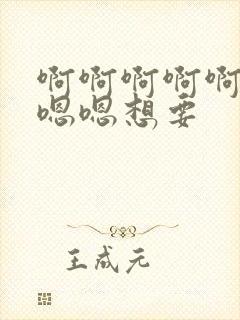 啊啊啊啊啊
嗯嗯想要
王成元